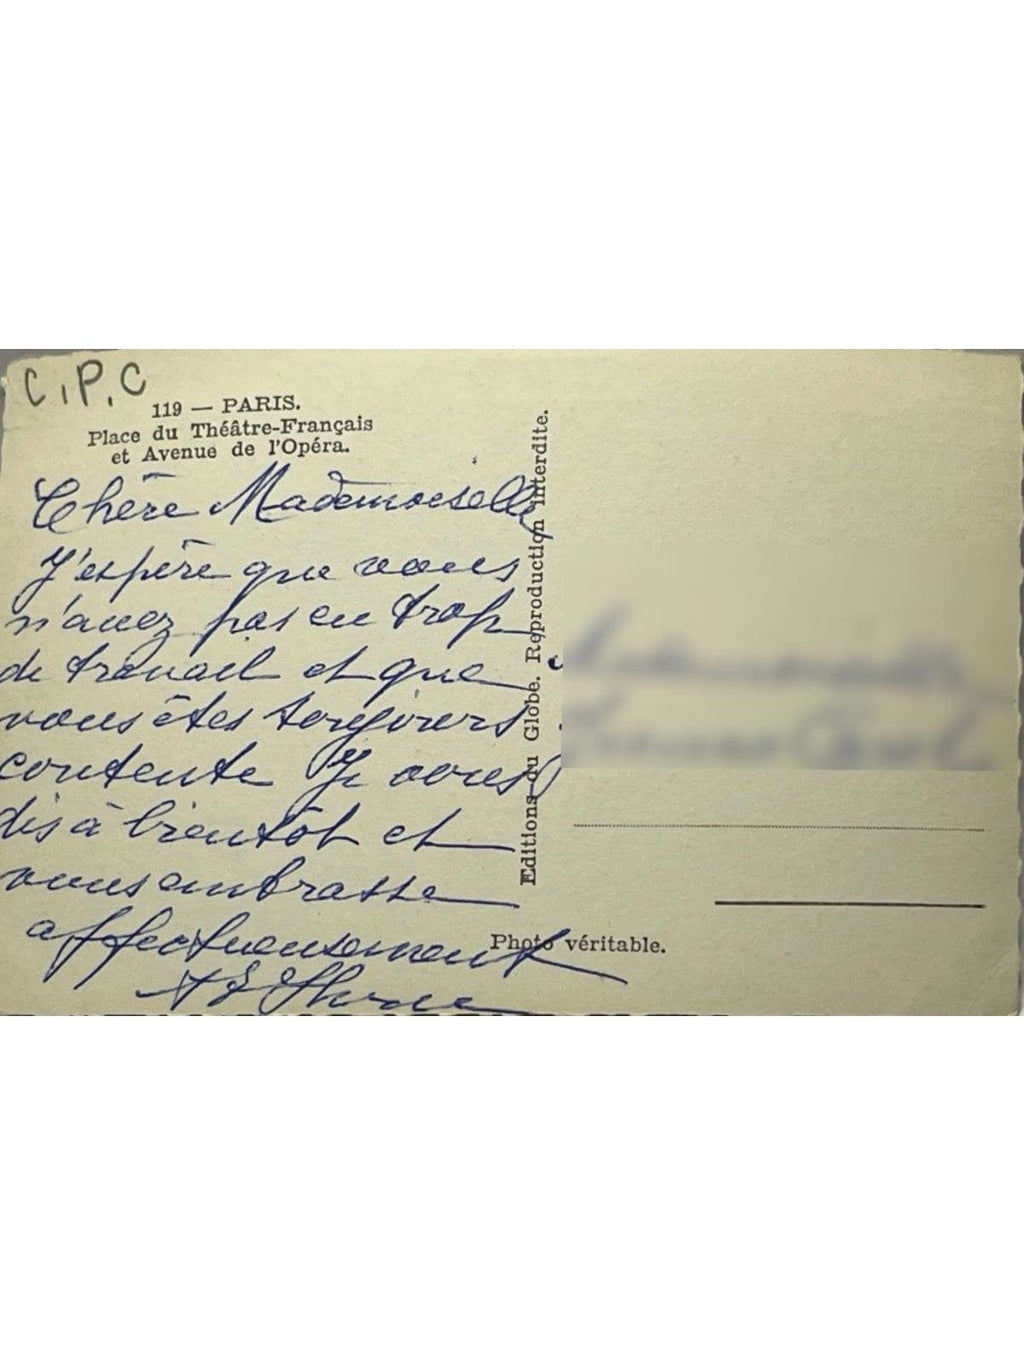 C.P.C
119 — PARIS.
Place du Théâtre-Français
et Avenue de l'Opéra.
Chère Mademoiselle
J'espère que vous
n'avez pas eu trop
de travail et que
vous êtes toujours
contente Je vous
dis à bientôt et
vous embrasse
affectueusement
Editions du Globe. Reproduction interdite.
Photo véritable.